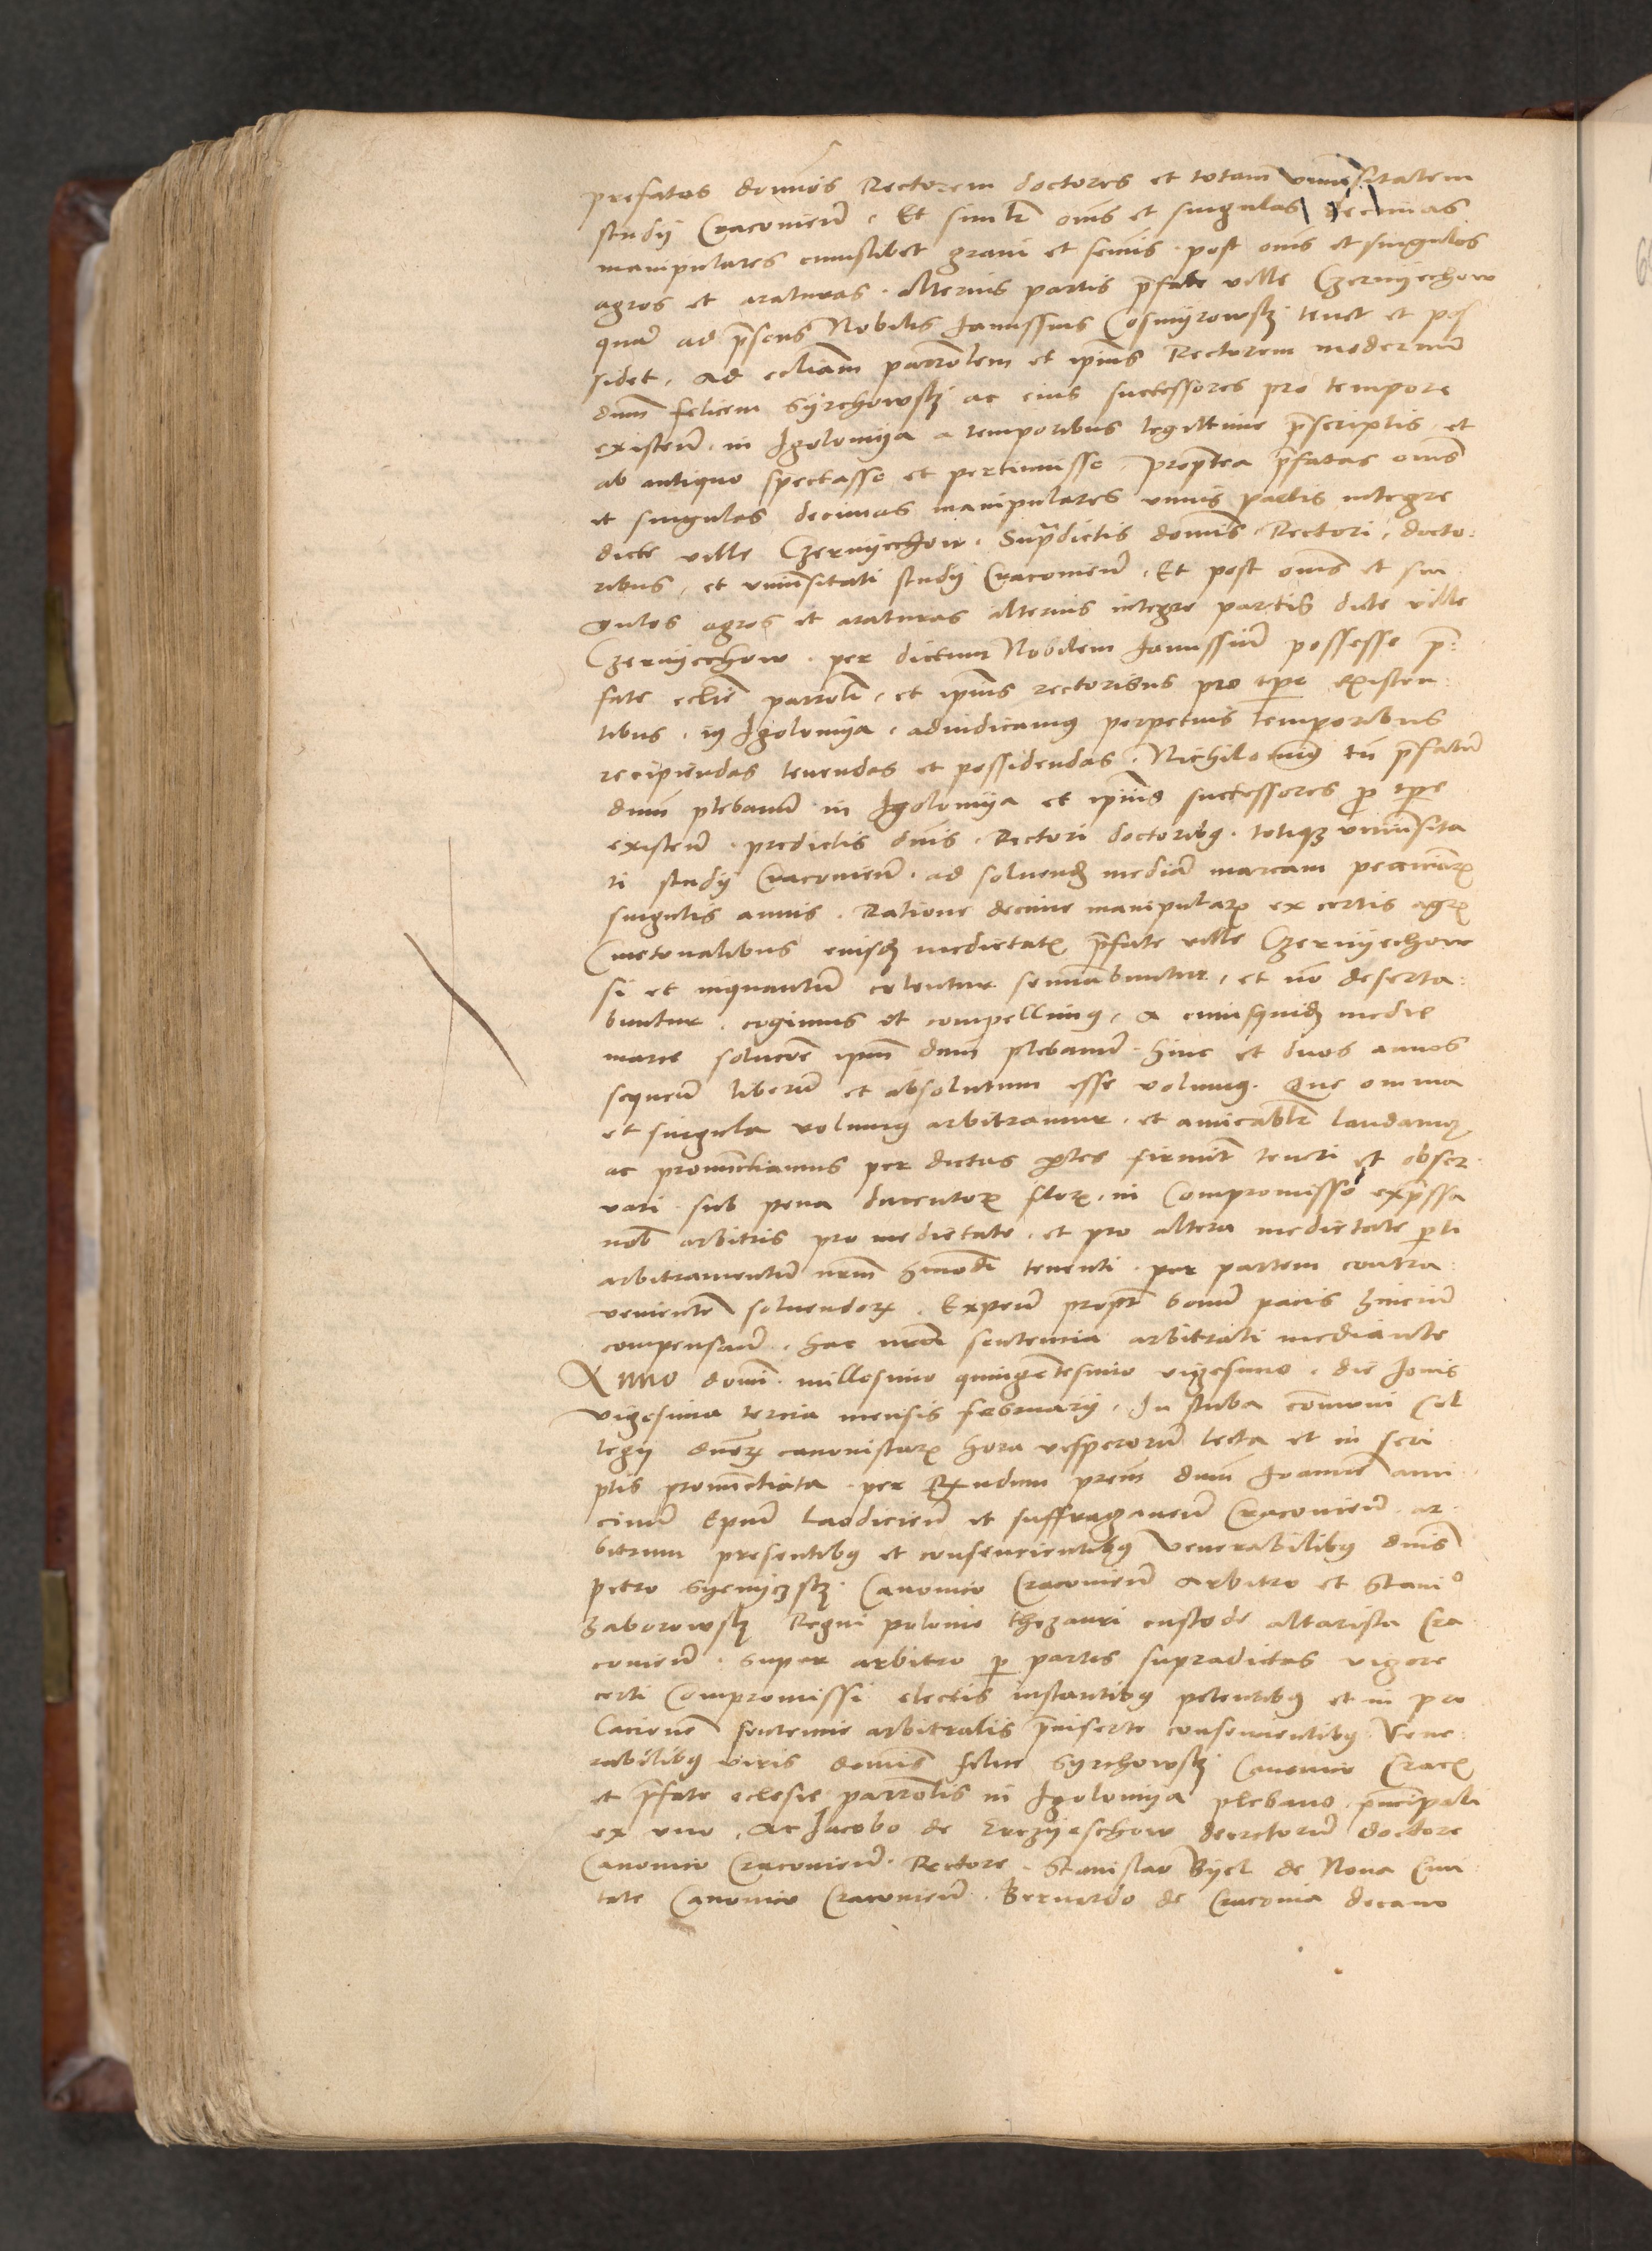 prefatos domin̄os Rectorem doctores et totam vniu̅sitatem
studij Cracovien̄. Et simlr om̄s et singulas decimas
manipulares cuiuslibet grani et seminis. post om̄s et singulos
agros et araturas. alterius partis p̄fate ville Czernyechow
quā ad p̄sens Nobilis Janussius Cosmyrowsky tenet et pos
sidet. ad eccliam parrochlem et ipius Rectorem modernū
dnm felicem Syrchowsky ac eius successores pro tempore
existen̄. in Jgolomya a temporibus legittime p̄scriptis. et
ab antiquo spectasse et pertinuisse. Propterea p̄fatas om̄s
et singulas decimas manipulares vnius partis integre
dicte ville Czernyechow. Supradictis domīs Rectori, docto:
ribus, et vniu̅sitati studij Cracovien̄. Et post om̄s et sin
gulos agros et araturas alterius integre partis dicte ville
Czernyechow. per dictum Nobilem Janussiū possesse p̄:
fate ecclie parroli. et ipius rectoribus pro tpre existen:
tibus. in Jgolomya. adiudicamus perpetuis temporibus
recipiendas tenendas et possidendas. Nichilominus tn̄ p̄fatū
dnm plebanū in Jgolomya et ipius successores p̄ tpre
existen̄. predictis dnis. Rectori doctoribus. totique vniu̅sita
ti studij Cracovien̄. ad soluendū mediā marcam pecuniar
singulis annis. Ratione decime manipularis ex certis agris
Cmetonalibus eiusdem medietatis p̄fate ville Czernyechow
si et inquantū colentur seminabuntur. et nō deserta:
buntur. cogimus et compellimus. a cuiusquidem medie
marce solucōe ipm dnm plebanū hinc et duos annos
sequen̄ liberū et absolutum esse volumus. Que omnia
et singula volumus arbitramur. et amicablr laudamus
ac pronunctiamus per dictas p̄tes firmitr teneri et obser
vari sub pena ducentor florenorum in Compromisso exp̄ssa
nob̄ arbitris pro medietate. et pro altera medietate p̄ti
arbitramentū nr̄m hmodi tenenti. per partem contra:
venientē soluendor. Expen̄ propter bonū pacis hincin̄
compensan̄. hac nr̄a sentencia arbitrali mediante
Anno domi. millesimo quingētesimo vigesimo. die Jouis
vigesima tercia mensis februarij. Jn stuba cōmuni Col
legij dnor canonistar hora vesperorū lecta et in scri
ptis pronunctiata. per Rndum prem̄ dnm Joannē ami
cinum Epm̄ Laodicien̄ et suffraganeū Cracovien̄ ar
bitrum presentibus et consencientibus venerabilibus dnis
petro Canonico Cracovien̄ arbitro et Stanio
Zaborowsky Regni polonie thezauri custode altarista Cra
covien̄. super arbitro p̄ partes supradictas vigore
certi Compromissi electis instantibus petentibus et in pro
lacionē sentencie arbitralis p̄inserte consencientibus Vene:
rabilibus viris domīs felice Syrchowsky Canonico Crac
et p̄fate eclesie parrolis in Jgolomya plebano p̄ncipali
ex vno. Ac Jacobo de decretorū doctore
Canonico Cracovien̄. Rectore. Stanislao Byel de Noua Ciui
tate Canonico Cracovien̄. Bernardo de Cracouia decano